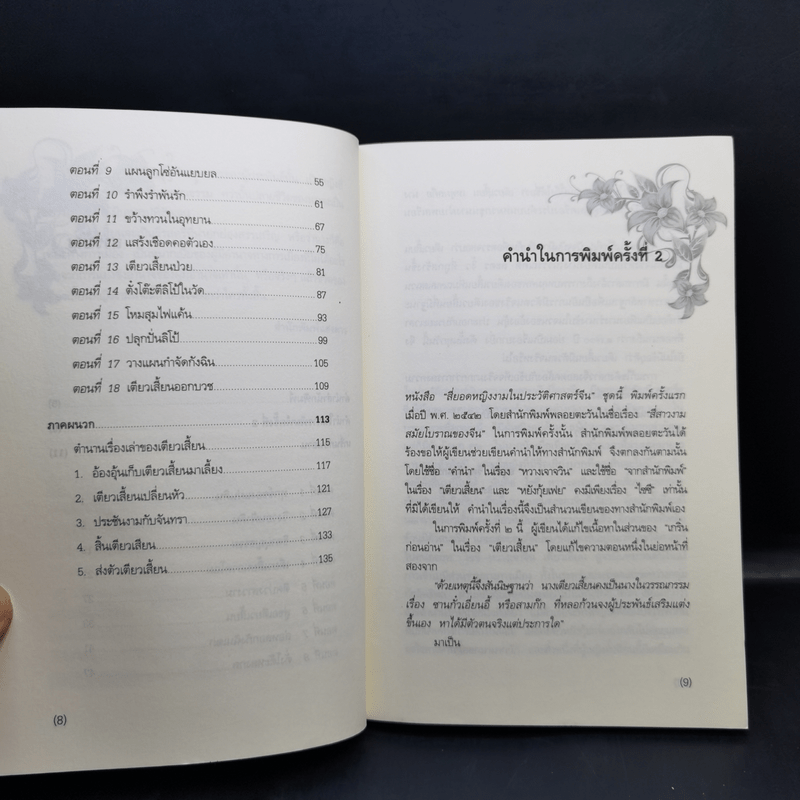 ตอนที่ 9 แผนลูกโซ่อันแยบยล 55
ตอนที่ 10 รำพึงรำพันรัก 61
ตอนที่ 11 ขว้างทวนในอุทยาน 67
ตอนที่ 12 แสร้งเชือดคอตัวเอง 75
ตอนที่ 13 เตียวเสี้ยนป่วย 81
ตอนที่ 14 ตั้งโต๊ะตีลิโป้ในวัด 87
ตอนที่ 15 โหมสุมไฟแค้น 93
ตอนที่ 16 ปลุกปั่นลิโป้ 99
ตอนที่ 17 วางแผนกำจัดกังฉิน 105
ตอนที่ 18 เตียวเสี้ยนออกบวช 109
ภาคผนวก 113
ตำนานเรื่องเล่าของเตียวเสี้ยน 115
1. อ้องอุ้นเก็บเตียวเสี้ยนมาเลี้ยง 117
2. เตียวเสี้ยนเปลี่ยนหัว 121
3. ประชันงามกับจันทรา 127
4. สิ้นเตียวเสียน 133
5. ส่งตัวเตียวเสี้ยน 135
(8)
คำนำในการพิมพ์ครั้งที่ 2
หนังสือ "สี่ยอดหญิงงามในประวัติศาสตร์จีน" ชุดนี้ พิมพ์ครั้งแรก
เมื่อปี พ.ศ. ๒๕๔๒ โดยสำนักพิมพ์พลอยตะวันในชื่อเรื่อง "สี่สาวงาม
สมัยโบราณของจีน" ในการพิมพ์ครั้งนั้น สำนักพิมพ์พลอยตะวันได้
ร้องขอให้ผู้เขียนช่วยเขียนคำนำให้ทางสำนักพิมพ์ จึงตกลงกันตามนั้น
โดยใช้ชื่อ "คำนำ" ในเรื่อง "หวางเจาจวิน" และใช้ชื่อ "จากสำนักพิมพ์"
ในเรื่อง "เตียวเสี้ยน" และ "หยังกุ้ยเฟย" คงมีเพียงเรื่อง "ไซซี" เท่านั้น
ที่มิได้เขียนให้ คำนำในเรื่องนี้จึงเป็นสำนวนเขียนของทางสำนักพิมพ์เอง
ในการพิมพ์ครั้งที่ ๒ นี้ ผู้เขียนได้แก้ไขเนื้อหาในส่วนของ "เกริ่น
ก่อนอ่าน" ในเรื่อง "เตียวเสี้ยน" โดยแก้ไขความตอนหนึ่งในย่อหน้าที่
สองจาก
"ด้วยเหตุนี้จึงสันนิษฐานว่า นางเตียวเสี้ยนคงเป็นนางในวรรณกรรม
เรื่อง ซานกั๋วเอี่ยนอี้ หรือสามก๊ก ที่หลอก้วนจงผู้ประพันธ์เสริมแต่ง
ขึ้นเอง หาได้มีตัวตนจริงแต่ประการใด"
มาเป็น
(9)